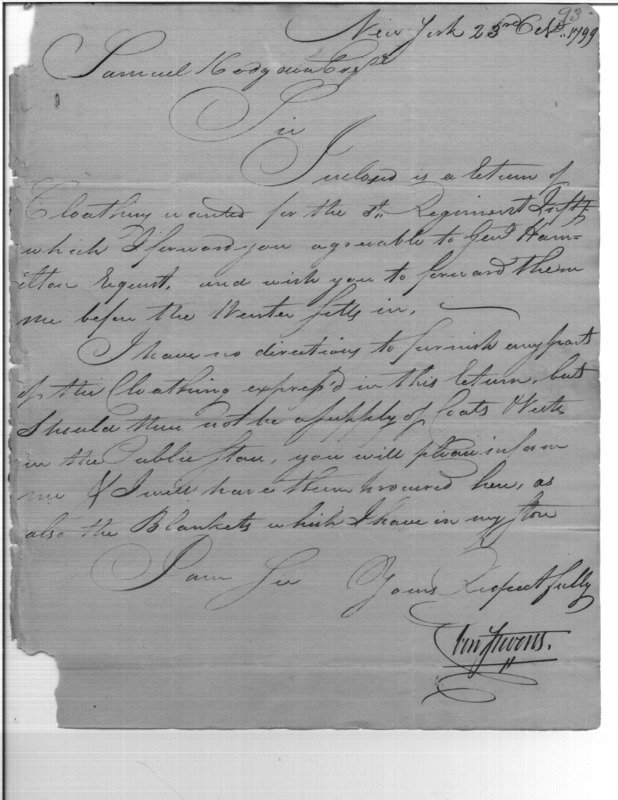 93
New York 23rd Octr. 1799
Samuel Hodgdon Esqr
Sir
Inclosed is a return of
Cloathing wanted for the Regiment Infty.
which I forward you agreeable to Genl Ham=
ilton request, and wish you to forward them
me before the Winter setts in.
I have no directions to furnish any part
of the Cloathing express'd in this return, but
should there not be a supply of Coats & Vests
in the Public Store, you will please inform
me & I will have them procured here, as
also the Blankets which I have in my Store
I am Sir Yours Respectfully
Eben Stevens.